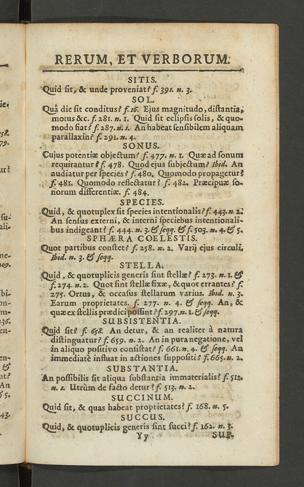 RERUM, ET VERBORUM.
SITIS.
Quid sit, & unde proveniat? f. 391. n. 3.
SOL.
Quâ die sit conditus? f. 16. Ejus magnitudo, distantia,
motus &c. f. 281. n. 1. Quid sit eclipsis solis, & quo-
modo fiat? f. 287. n. 1. An habeat sensibilem aliquam
parallaxin? f. 291. n. 4.
SONUS.
Cujus potentiæ objectum? f. 477. n. 1. Quæ ad sonum
requirantur? f. 478. Quod ejus subjectum? Ibid. An
audiatur per species? f. 480. Quomodo propagetur?
f. 481. Quomodo reflectatur? f. 482. Præcipuæ so-
norum differentiæ. f. 484.
SPECIES.
Quid, & quotuplex sit species intentionalis? f. 443. n. 2.
An sensus externi, & interni speciebus intentionali-
bus indigeant? f. 444. n. 3 & seqq. & f. 503. n. 4. & 5.
SPHÆRA COELESTIS.
Quot partibus constet? f. 258. n. 2. Varij ejus circuli.
Ibid. n. 3. & seqq.
STELLA.
Quid, & quotuplicis generis sint stellæ? f. 273. n. 1. &
f. 274. n. 2. Quot sint stellæ fixæ, & quot errantes? f.
275. Ortus, & occasus stellarum varius. Ibid. n. 3.
Earum proprietates. f. 277. n. 4. & seqq. An, &
quæ ex stellis prædici possint? f. 297. n. 1. & seqq.
SUBSISTENTIA.
Quid sit? f. 658. An detur, & an realiter à natura
distinguatur? f. 659. n. 2. An in pura negatione, vel
in aliquo positivo consistat? f. 661. n. 4. & seqq. An
immediatè influat in actiones suppositi? f. 665. n. 2.
SUBSTANTIA.
An possibilis sit aliqua substantia immaterialis? f. 512.
n. 1. Utrùm de facto detur? f. 513. n. 2.
SUCCINUM.
Quid sit, & quas habeat proprietates? f. 168. n. 5.
SUCCUS.
Quid, & quotuplicis generis sint succi? f. 162. n. 3.
Yy SUF-